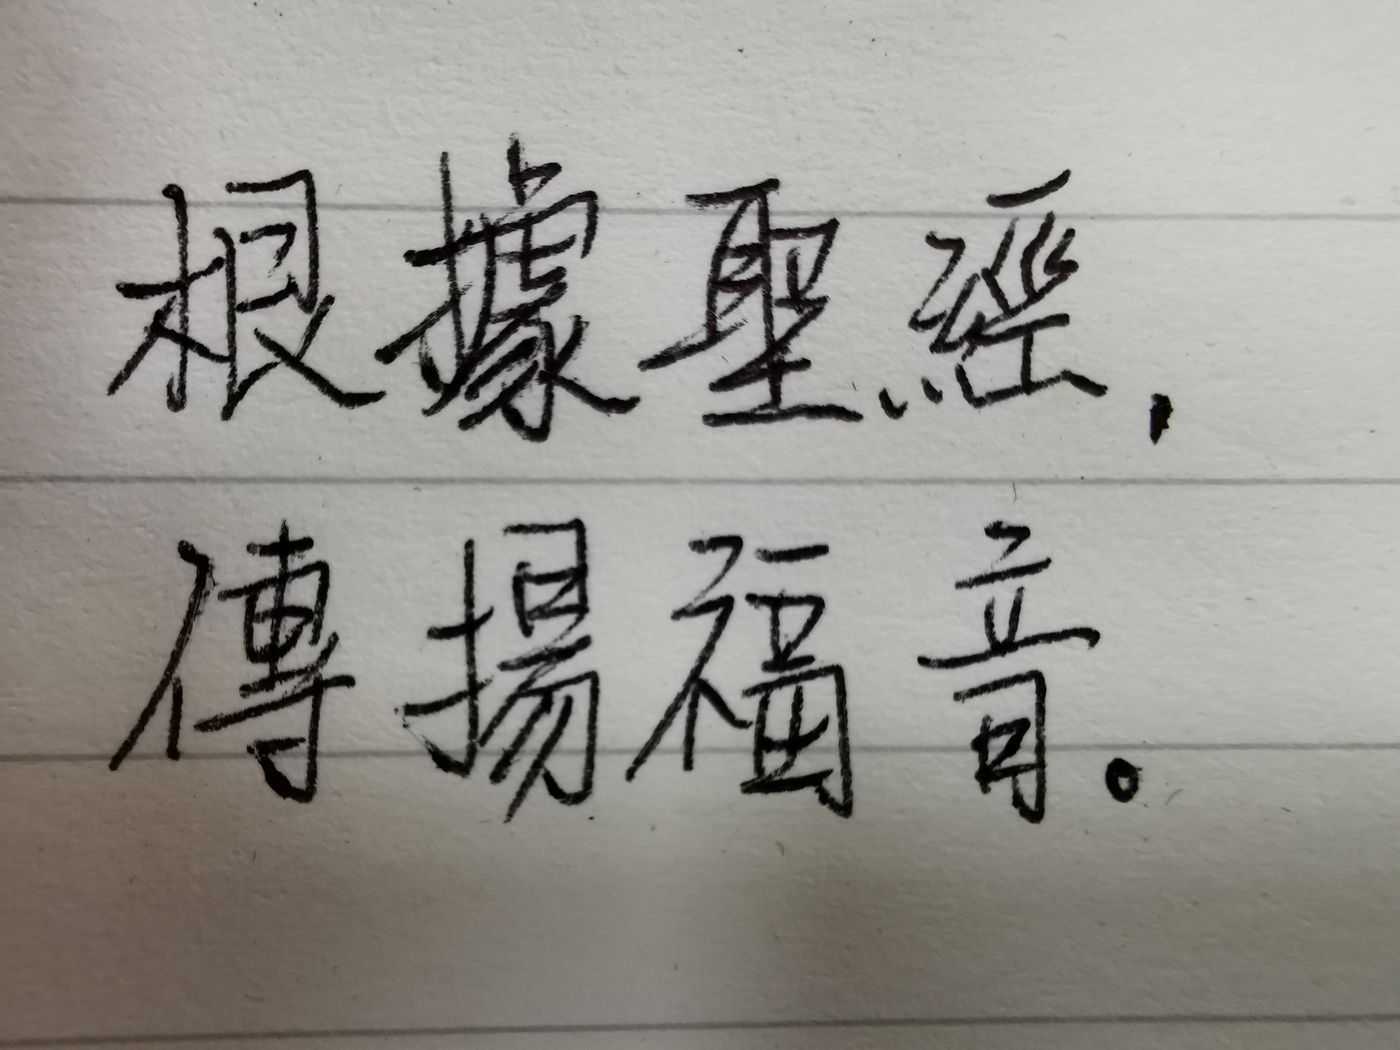 根據聖經，
傳揚福音。